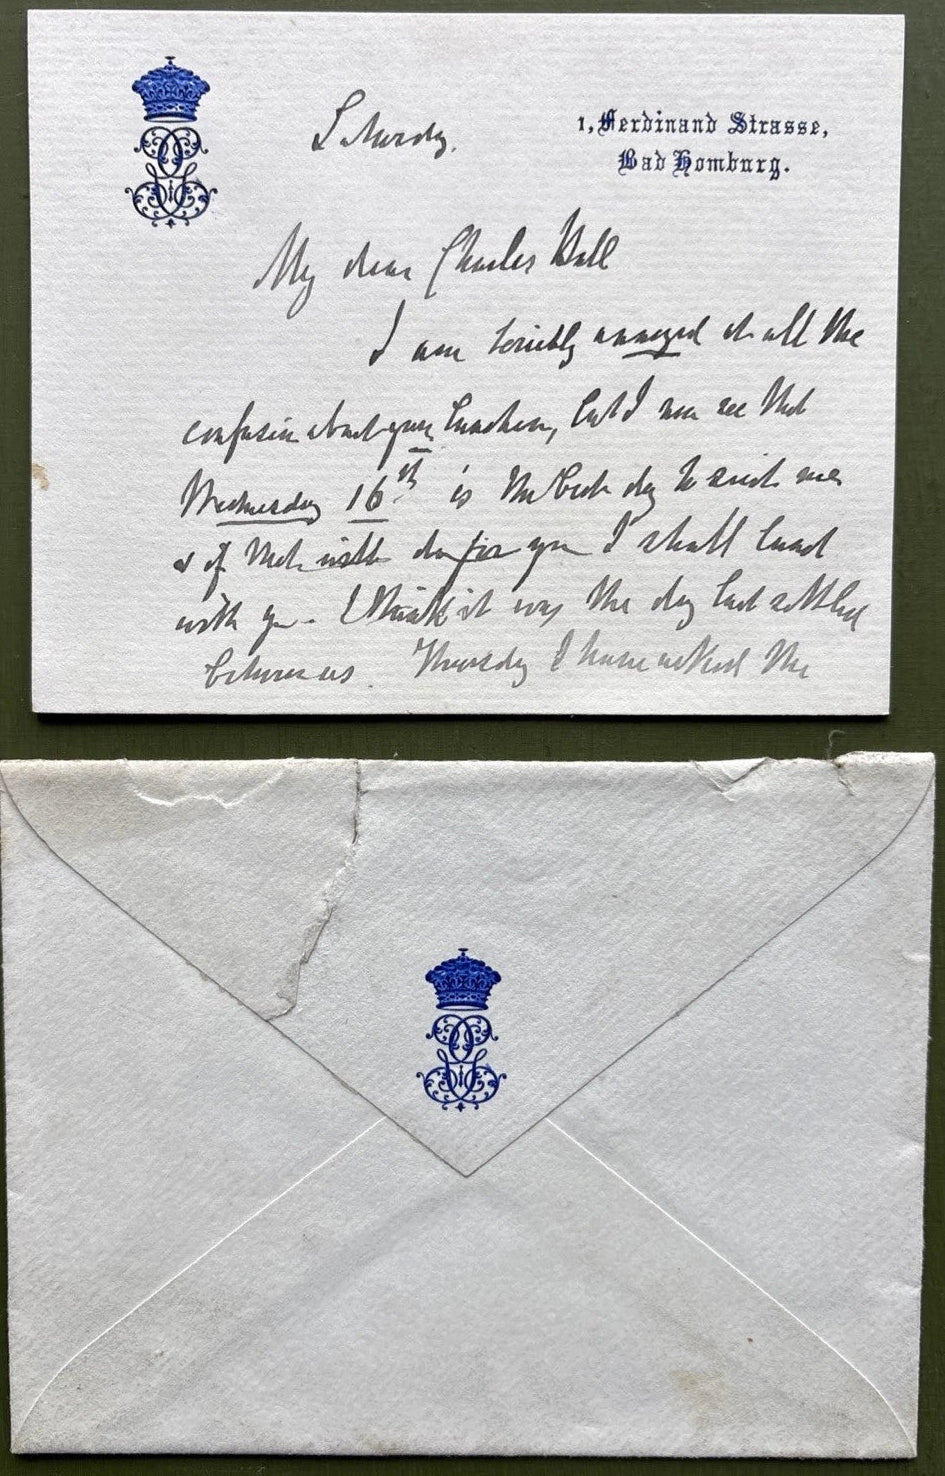 Saturday.
1, Ferdinand Strasse,
Bad Homburg.
My dear Charles Hall
I am terribly annoyed at all the
confusion about your luncheon, but I now see that
Wednesday 16th is the best day to suit me
& if that will do for you I shall lunch
with you. I think it was the day last settled
between us. Thursday I have asked the